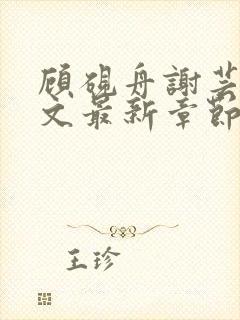 顾砚舟謝芸
文最新章節
王珍